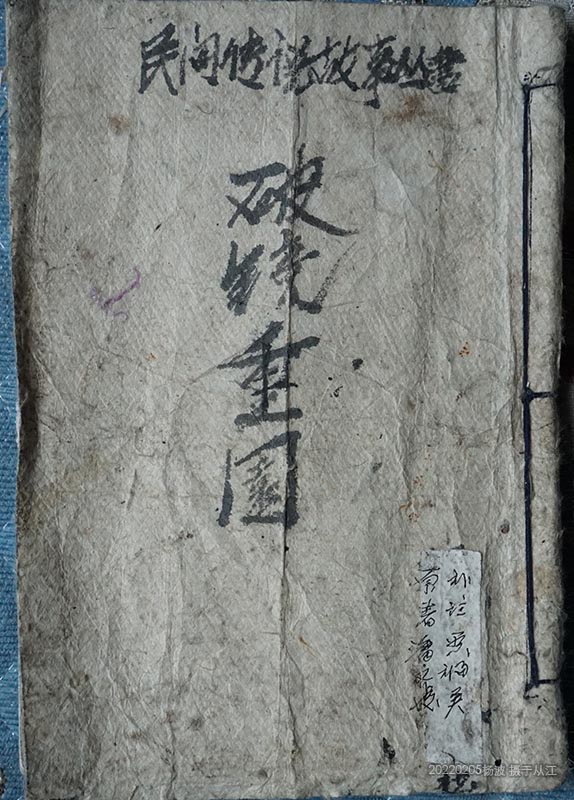 民间传说故事丛书
破镜重圆
原著潘
20220205杨波 摄于从江